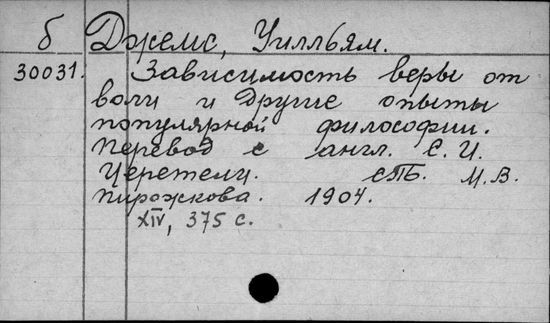 б Джемс, Уилльям.
30031. Зависимость веры от
воли и другие опыты
популярной философии.
Перевод с англ. С. И.
Церетели. СПб. М. В.
Пирожкова. 1904.
XIV, 375 с.